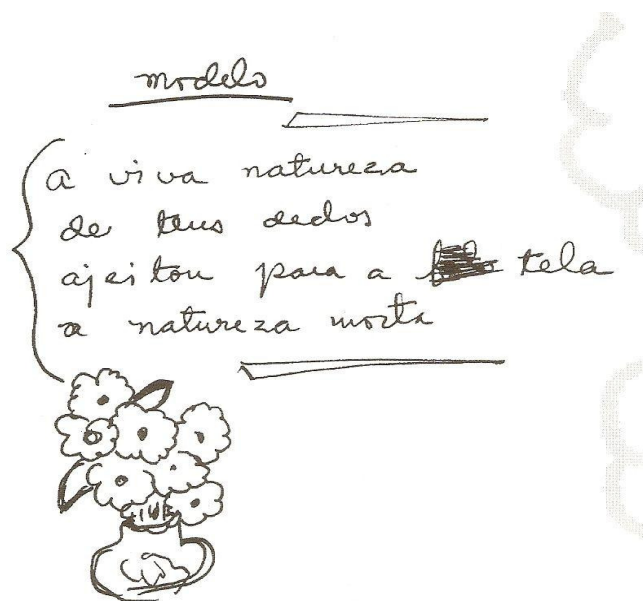 modelo
a viva natureza
de teus dedos
ajeitou para a tela
a natureza morta